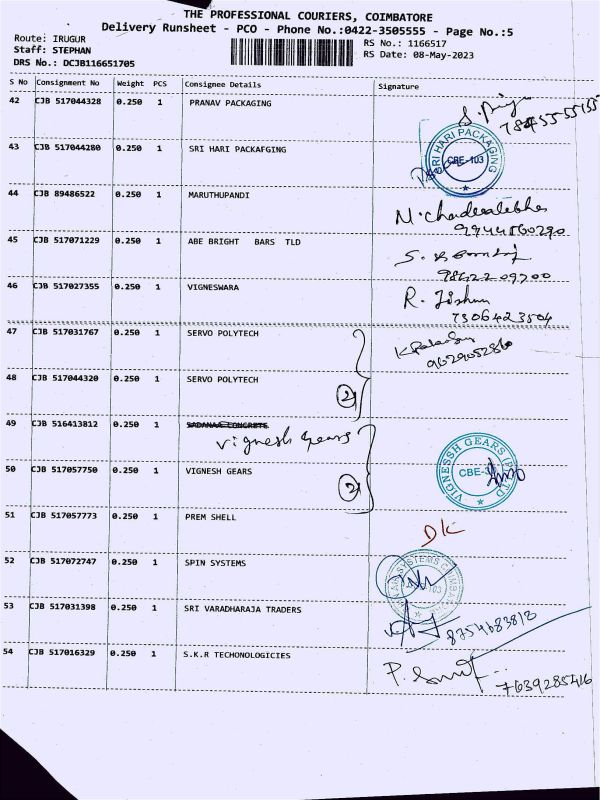 THE PROFESSIONAL COURIERS, COIMBATORE
Delivery Runsheet - PCO - Phone No.:0422-3505555 - Page No.:5
Route: IRUGUR RS No.: 1166517
Staff: STEPHAN RS Date: 08-May-2023
DRS No.: DCJB116651705
S No Consignment No Weight PCS Consignee Details Signature
42 CJB 517044328 0.250 1 PRANAV PACKAGING
43 CJB 517044280 0.250 1 SRI HARI PACKAFGING
HARI PACKAGING
CBE-103
44 CJB 89486522 0.250 1 MARUTHUPANDI
9944860290
45 CJB 517071229 0.250 1 ABE BRIGHT BARS TLD
9842209200
46 CJB 517027355 0.250 1 VIGNESWARA
R.
7306423504
47 CJB 517031767 0.250 1 SERVO POLYTECH
48 CJB 517044320 0.250 1 SERVO POLYTECH
2
49 CJB 516413812 0.250 1 SADANAA CONCRETE
Vignesh Gears
50 CJB 517057750 0.250 1 VIGNESH GEARS
2
VIGNESSH GEARS (P) LTD
CBE-
51 CJB 517057773 0.250 1 PREM SHELL
DK
52 CJB 517072747 0.250 1 SPIN SYSTEMS
53 CJB 517031398 0.250 1 SRI VARADHARAJA TRADERS
8754683818
54 CJB 517016329 0.250 1 S.K.R TECHONOLOGIES
7639285416